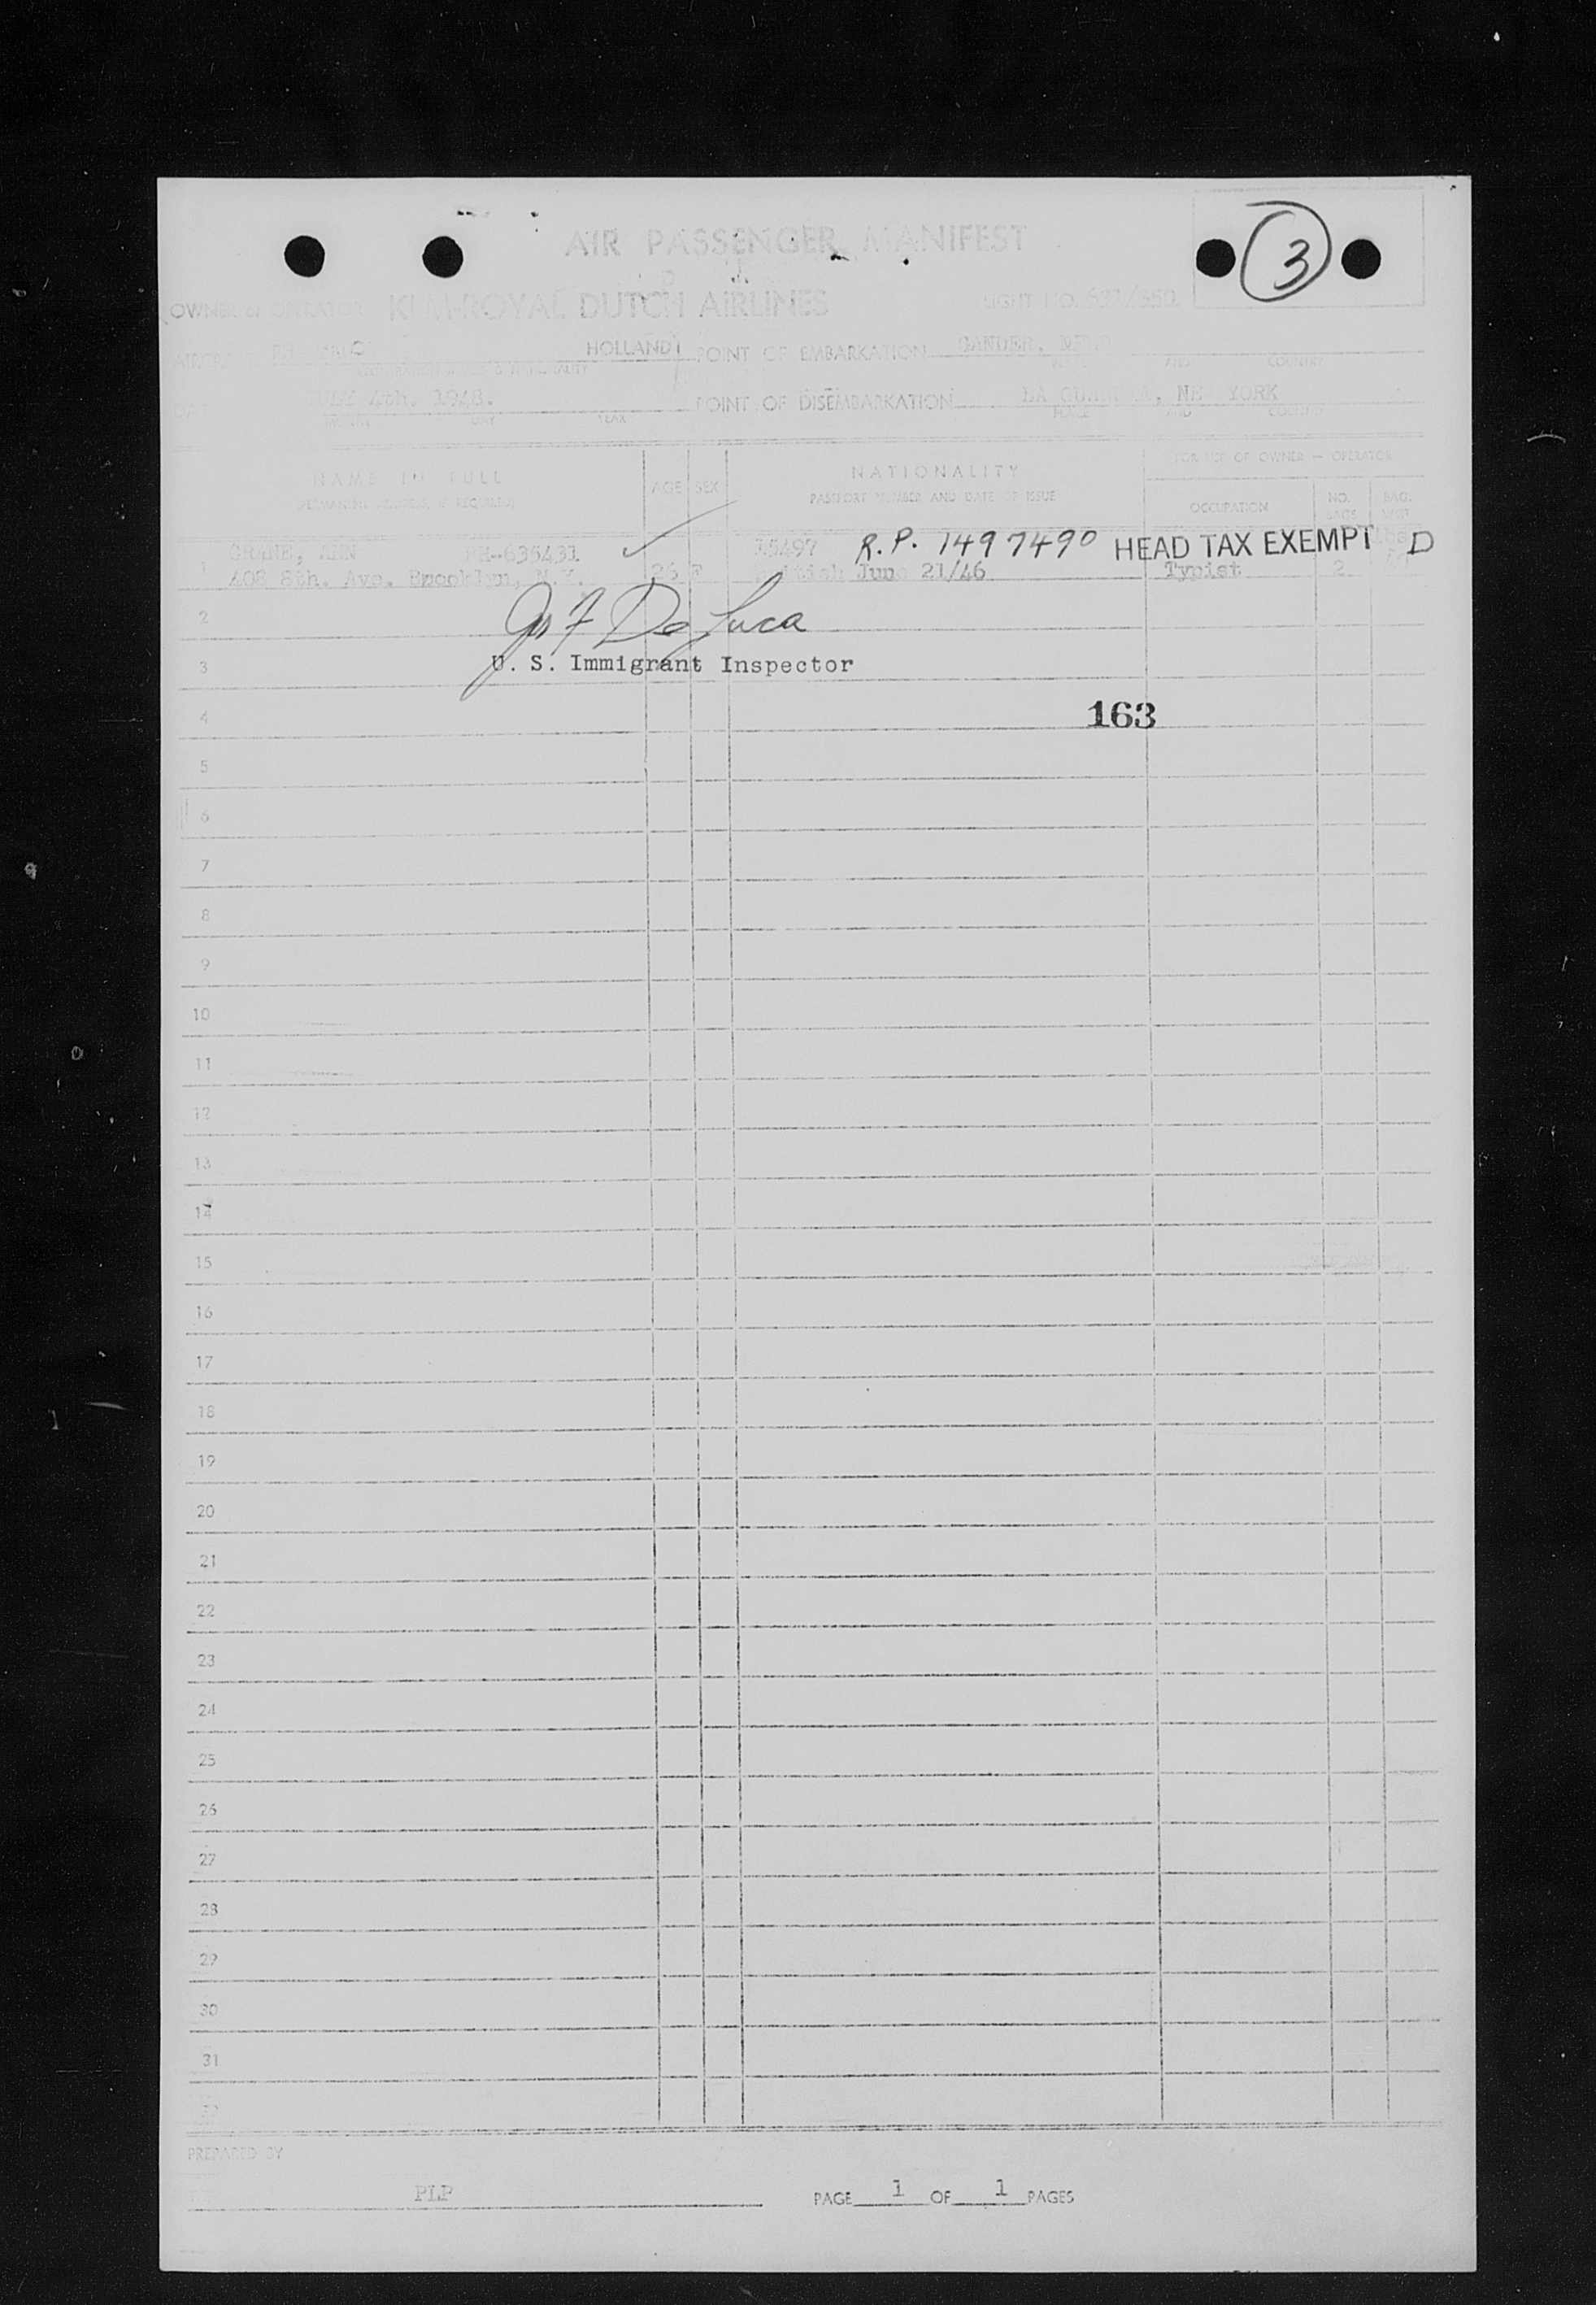 AIR PASSENGER MANIFEST
3
OWNER or OPERATOR KLM-ROYAL DUTCH AIRLINES FLIGHT NO.
HOLLAND POINT OF EMBARKATION GANDER,
AND COUNTRY
4th. 1948. POINT OF DISEMBARKATION LA GUARDIA, NEW YORK
MONTH DAY YEAR PLACE AND COUNTRY
NAME IN FULL AGE SEX NATIONALITY FOR USE OF OWNER — OPERATOR
PASSPORT NUMBER AND DATE OF ISSUE OCCUPATION NO. BAG.
ANN 635431 R.P. 1497490 HEAD TAX EXEMPT D
1 408 8th. Ave. Brooklyn, N.Y. 26 F British June 21/46 Typist 2
2 Jos F De Luca
3 U. S. Immigrant Inspector
4 163
5
6
7
8
9
10
11
12
13
14
15
16
17
18
19
20
21
22
23
24
25
26
27
28
29
30
31
32
PREPARED BY
PLP PAGE 1 OF 1 PAGES